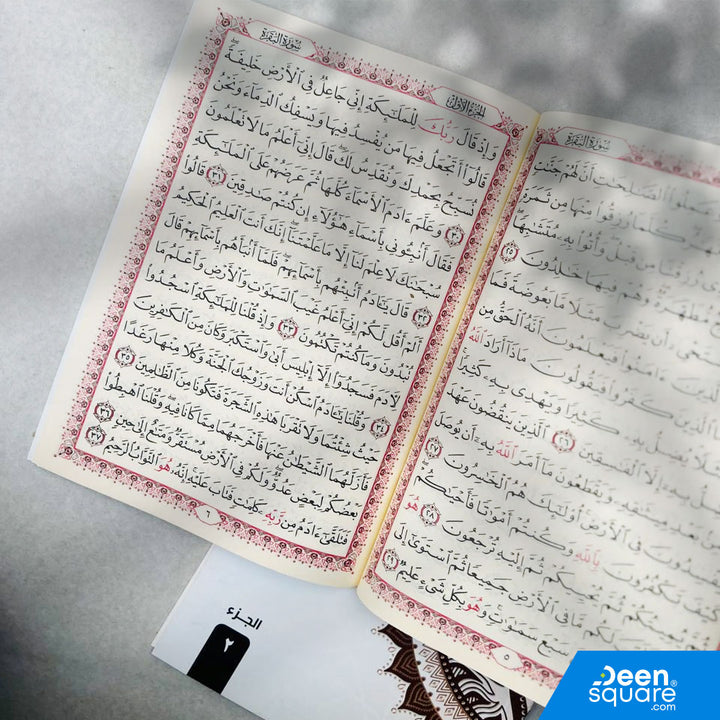 سُورَةُ البَقَرَةِ
وَعَمِلُوا۟ ٱلصَّـٰلِحَـٰتِ أَنَّ لَهُمْ جَنَّـٰتٍ
كُلَّمَا رُزِقُوا۟ مِنْهَا مِن ثَمَرَةٍ
رُزِقْنَا مِن قَبْلُ وَأُتُوا۟ بِهِۦ مُتَشَـٰبِهًا
مُّطَهَّرَةٌ وَهُمْ فِيهَا خَـٰلِدُونَ ٢٥
أَن يَضْرِبَ مَثَلًا مَّا بَعُوضَةً فَمَا
ءَامَنُوا۟ فَيَعْلَمُونَ أَنَّهُ ٱلْحَقُّ مِن
ٱلَّذِينَ كَفَرُوا۟ فَيَقُولُونَ مَاذَآ أَرَادَ ٱللَّهُ
يُضِلُّ بِهِۦ كَثِيرًا وَيَهْدِى بِهِۦ كَثِيرًا
بِهِۦٓ إِلَّا ٱلْفَـٰسِقِينَ ٢٦ ٱلَّذِينَ يَنقُضُونَ عَهْدَ
مِيثَـٰقِهِۦ وَيَقْطَعُونَ مَآ أَمَرَ ٱللَّهُ بِهِۦٓ أَن يُوصَلَ
وَيُفْسِدُونَ فِى ٱلْأَرْضِ أُو۟لَـٰٓئِكَ هُمُ ٱلْخَـٰسِرُونَ ٢٧
كَيْفَ تَكْفُرُونَ بِٱللَّهِ وَكُنتُمْ أَمْوَٰتًا فَأَحْيَـٰكُمْ
يُمِيتُكُمْ ثُمَّ يُحْيِيكُمْ ثُمَّ إِلَيْهِ تُرْجَعُونَ ٢٨ هُوَ
لَكُم مَّا فِى ٱلْأَرْضِ جَمِيعًا ثُمَّ ٱسْتَوَىٰٓ إِلَى
سَبْعَ سَمَـٰوَٰتٍ وَهُوَ بِكُلِّ شَىْءٍ عَلِيمٌ ٢٩
٥
الجُزْءُ الأَوَّلُ
سُورَةُ البَقَرَةِ
وَإِذْ قَالَ رَبُّكَ لِلْمَلَـٰٓئِكَةِ إِنِّى جَاعِلٌ فِى ٱلْأَرْضِ خَلِيفَةً
قَالُوٓا۟ أَتَجْعَلُ فِيهَا مَن يُفْسِدُ فِيهَا وَيَسْفِكُ ٱلدِّمَآءَ وَنَحْنُ
نُسَبِّحُ بِحَمْدِكَ وَنُقَدِّسُ لَكَ قَالَ إِنِّىٓ أَعْلَمُ مَا لَا تَعْلَمُونَ
٣٠ وَعَلَّمَ ءَادَمَ ٱلْأَسْمَآءَ كُلَّهَا ثُمَّ عَرَضَهُمْ عَلَى ٱلْمَلَـٰٓئِكَةِ
فَقَالَ أَنۢبِـُٔونِى بِأَسْمَآءِ هَـٰٓؤُلَآءِ إِن كُنتُمْ صَـٰدِقِينَ ٣١ قَالُوا۟
سُبْحَـٰنَكَ لَا عِلْمَ لَنَآ إِلَّا مَا عَلَّمْتَنَآ إِنَّكَ أَنتَ ٱلْعَلِيمُ ٱلْحَكِيمُ
٣٢ قَالَ يَـٰٓـَٔادَمُ أَنۢبِئْهُم بِأَسْمَآئِهِمْ فَلَمَّآ أَنۢبَأَهُم بِأَسْمَآئِهِمْ قَالَ
أَلَمْ أَقُل لَّكُمْ إِنِّىٓ أَعْلَمُ غَيْبَ ٱلسَّمَـٰوَٰتِ وَٱلْأَرْضِ وَأَعْلَمُ مَا
تُبْدُونَ وَمَا كُنتُمْ تَكْتُمُونَ ٣٣ وَإِذْ قُلْنَا لِلْمَلَـٰٓئِكَةِ ٱسْجُدُوا۟
لِـَٔادَمَ فَسَجَدُوٓا۟ إِلَّآ إِبْلِيسَ أَبَىٰ وَٱسْتَكْبَرَ وَكَانَ مِنَ ٱلْكَـٰفِرِينَ
٣٤ وَقُلْنَا يَـٰٓـَٔادَمُ ٱسْكُنْ أَنتَ وَزَوْجُكَ ٱلْجَنَّةَ وَكُلَا مِنْهَا رَغَدًا
حَيْثُ شِئْتُمَا وَلَا تَقْرَبَا هَـٰذِهِ ٱلشَّجَرَةَ فَتَكُونَا مِنَ ٱلظَّـٰلِمِينَ ٣٥
فَأَزَلَّهُمَا ٱلشَّيْطَـٰنُ عَنْهَا فَأَخْرَجَهُمَا مِمَّا كَانَا فِيهِ وَقُلْنَا ٱهْبِطُوا۟
بَعْضُكُمْ لِبَعْضٍ عَدُوٌّ وَلَكُمْ فِى ٱلْأَرْضِ مُسْتَقَرٌّ وَمَتَـٰعٌ إِلَىٰ حِينٍ ٣٦
فَتَلَقَّىٰٓ ءَادَمُ مِن رَّبِّهِۦ كَلِمَـٰتٍ فَتَابَ عَلَيْهِ إِنَّهُۥ هُوَ ٱلتَّوَّابُ ٱلرَّحِيمُ ٣٧
٦
الجزء
٢
Deen
square®
.com